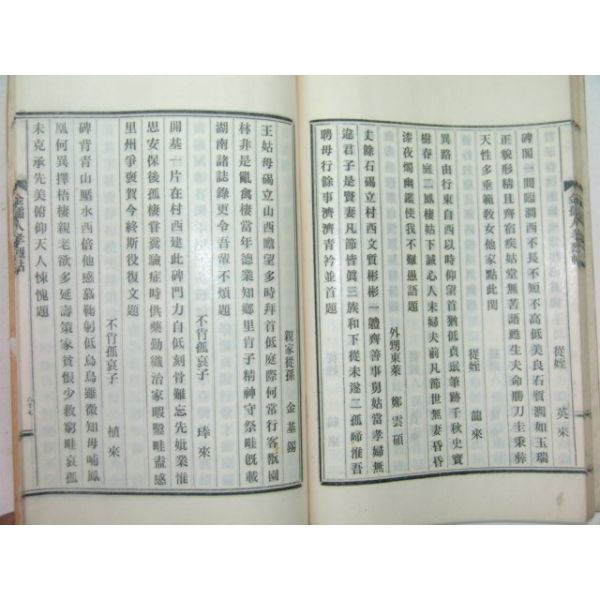 從姪 英來
碑閣一間臨澗西不長不短不高低美良石質潤如玉瑞
正貌形精且齊宿疾姑堂無苦語甦生夫命勝刀圭秉彛
天性多垂範敎女他家點此閔
從姪 龍來
異路由行東自西以時仰望首猶低貞珉筆跡千秋史寶
樹春庭二鳳棲姑下誠心人未婦夫前凡節世無妻昏昏
漆夜燭幽鑑使我不難愚語題
外甥東萊 鄭雲碩
丈餘石碣立村西文質彬彬一體齊善事舅姑當孝婦無
違君子是賢妻凡節皆眞三族和下從未遂二孤啼淮吾
聘母行餘事濟濟靑衿並首題
親家從孫 金基錫
王姑母碣立山西瞻望多時拜首低庭際何常行客翫園
林非是亂禽棲當年德業知鄕里肯子精神守祭畦旣載
湖南諸誌錄更令吾輩不煩題
不肖孤哀子 瑋來
開基一片在村西建此碑門力自低刻骨難忘先妣業惟
思安保後孤棲嘗糞驗症時供藥勤織治家暇鑿畦盍感
里州爭褒賀令終斯役復文題
不肖孤哀子 楨來
碑背靑山壓水西倍他感慕鞠躬低烏烏雖微知母哺鳳
凰何異擇梧棲親老欲多延壽策家貧恨少救窮畦哀孤
未克承先美俯仰天人悚愧題